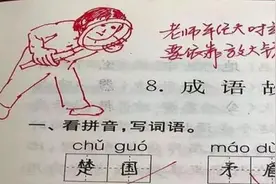 老师年纪大时
要依靠放大镜
8.成语故
一、看拼音,写词语。
chǔ guó
máo dù
楚国
矛盾